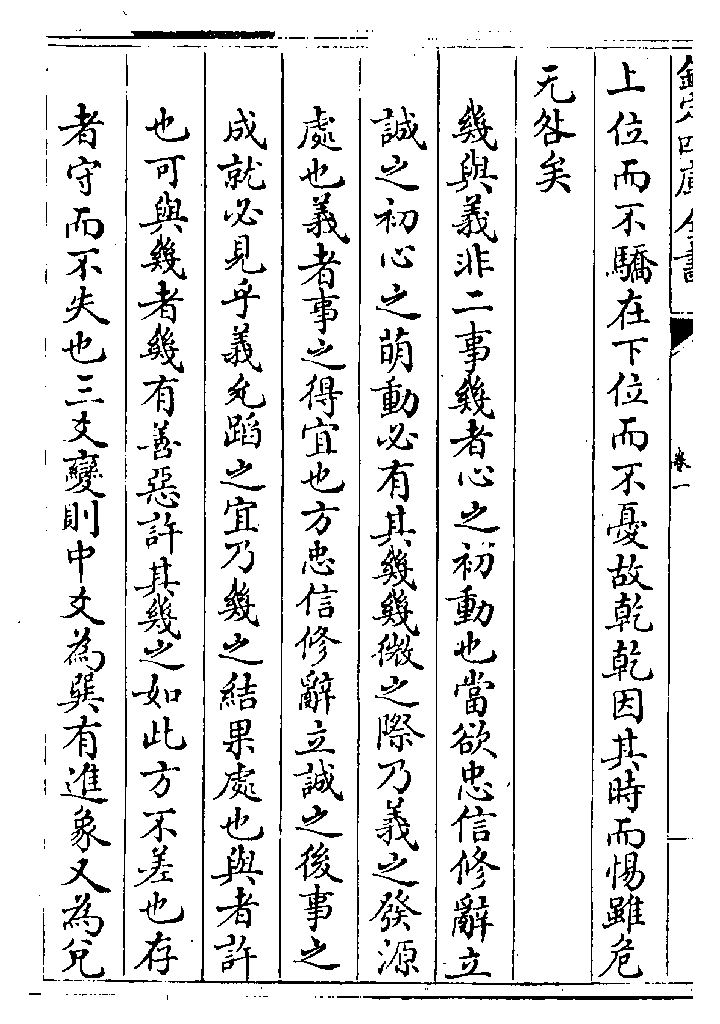 欽定四庫全書
卷一
上位而不驕在下位而不憂故乾乾因其時而惕雖危
无咎矣
幾與義非二事幾者心之初動也當欲忠信修辭立
誠之初心之萌動必有其幾幾微之際乃義之發源
處也義者事之得宜也方忠信修辭立誠之後事之
成就必見乎義允蹈之宜乃幾之結果處也與者許
也可與幾者幾有善惡許其幾之如此方不差也存
者守而不失也三爻變則中爻為巽有進象又為兌